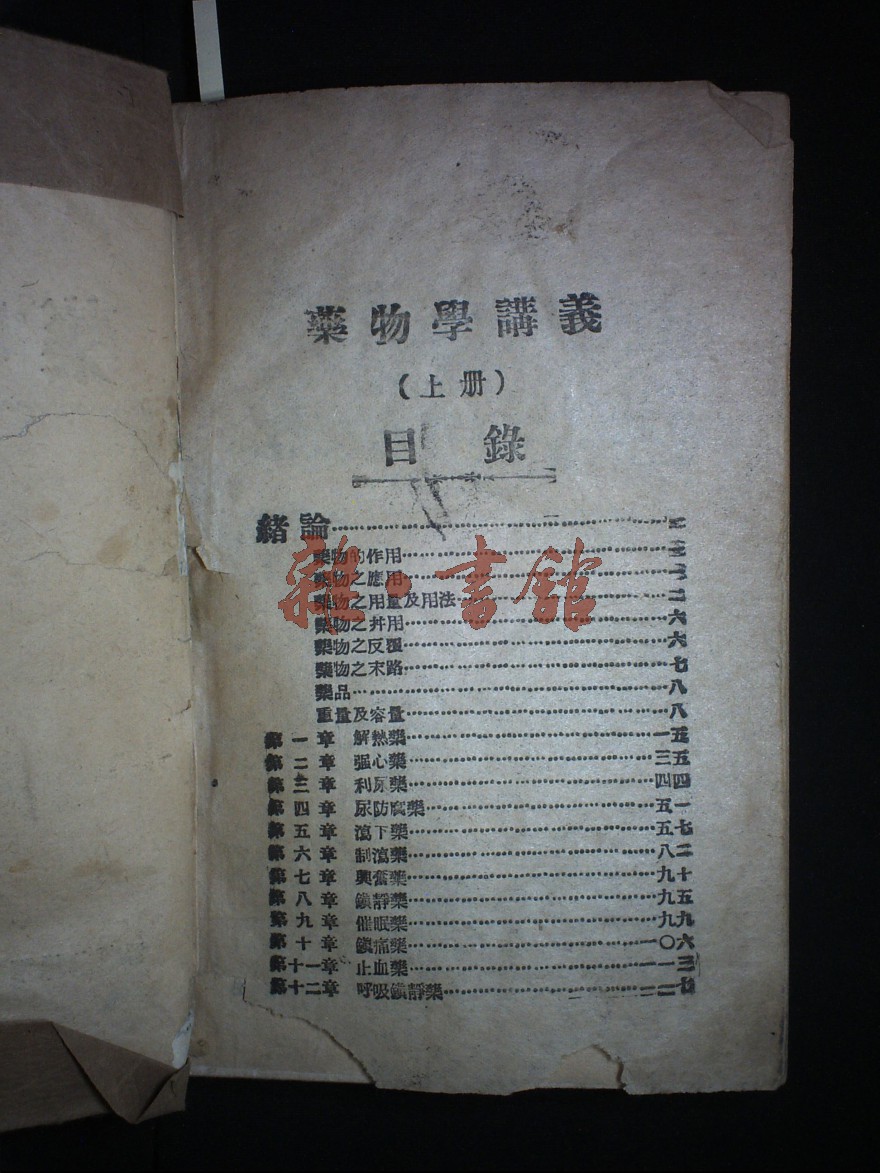 藥物學講義
(上册)
目錄
緒論
藥物的作用
藥物之應用
藥物之用量及用法 二
藥物之幷用 六
藥物之反覆 六
藥物之末路 七
藥品 八
重量及容量 八
第一章 解熱藥 一五
第二章 强心藥 三五
第三章 利尿藥 四四
第四章 尿防腐藥 五一
第五章 瀉下藥 五七
第六章 制瀉藥 八二
第七章 興奮藥 九十
第八章 鎮靜藥 九五
第九章 催眠藥 九九
第十章 鎮痛藥 一〇六
第十一章 止血藥 一一三
第十二章 呼吸鎮靜藥
雜·書館